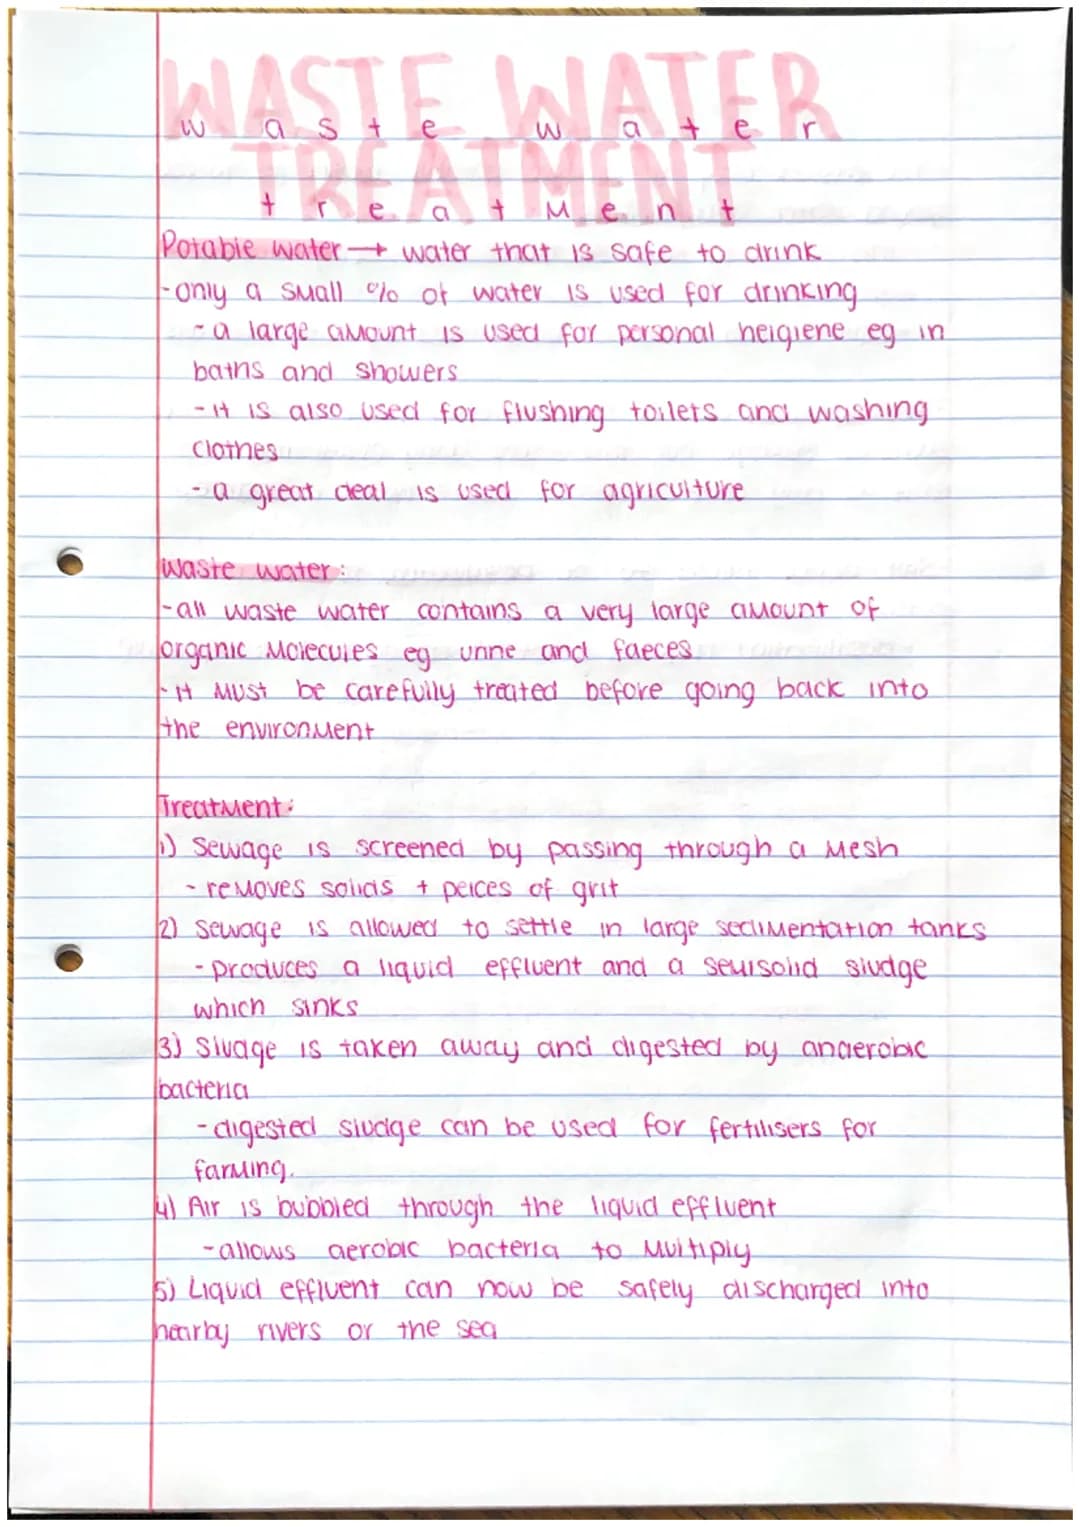 WASTE WATER
waste water
TREATMENT
treatment
Potable water → water that is safe to drink
-only a small % of water is used for drinking
- a large amount is used for personal heigiene eg in
baths and showers
- it is also used for flushing toilets and washing
clothes
- a great deal is used for agriculture
Waste water:
-all waste water contains a very large amount of
organic molecules eg urine and faeces
- it must be carefully treated before going back into
the environment
Treatment:
1) Sewage is screened by passing through a mesh
- removes solids + peices of grit
2) Sewage is allowed to settle in large sedimentation tanks
- produces a liquid effluent and a semisolid sludge
which sinks
3) Sluage is taken away and digested by anaerobic
bacteria
- digested sludge can be used for fertilisers for
farming.
4) Air is bubbled through the liquid effluent
- allows aerobic bacteria to multiply
5) Liquid effluent can now be safely discharged into
nearby rivers or the sea